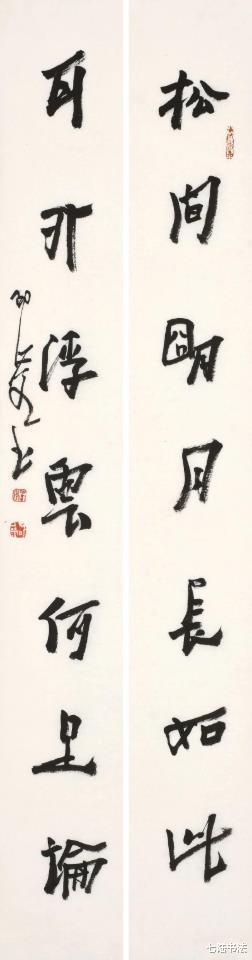 松間朙月長如此
身外浮雲何足論
七涵书法